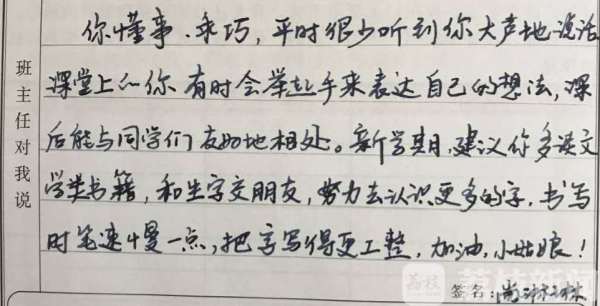 班主任对我说
你懂事、乖巧，平时很少听到你大声地说话
课堂上的你有时会举起手来表达自己的想法，课
后能与同学们友好地相处。新学期，建议你多读文
学类书籍，和生字交朋友，努力去认识更多的字，书写
时笔速慢一点，把字写得更工整，加油，小姑娘！
签名：
荔枝新闻